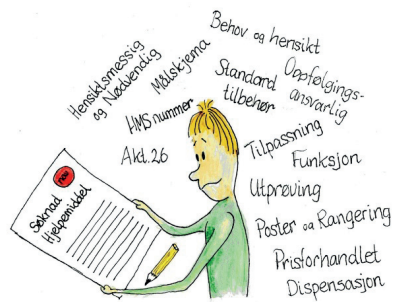 Hensiktsmessig
og Nødvendig
Målskjema
Behov og hensikt
Standard
tilbehør
Oppfølgings-
ansvarlig
HMS nummer
Akt.26
Tilpassning
Funksjon
Utprøving
Poster og Rangering
Prisforhandlet
Dispensasjon
Søknad
Hjelpemiddel